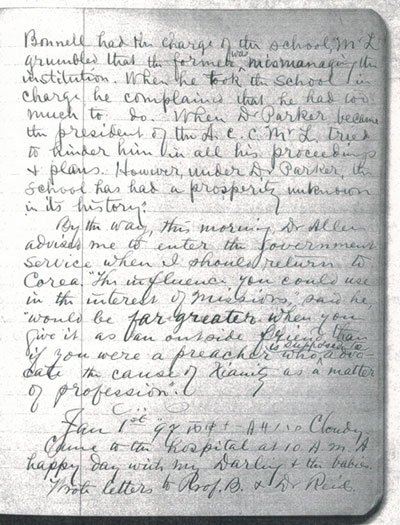 Bonnell had the charge of the school, Mc L
grumbled that the former was mismanaging the
institution. When he took the School in
charge he complained that he had too
much to do. When Dr Parker became
the president of the A. C. C. Mc L. tried
to hinder him in all his proceedings
& plans. However, under Dr Parker, the
school has had a prosperity unknown
in its history."
By the way, this morning Dr Allen
advised me to enter the government
service when I should return to
Corea. "The influence you could use
in the interest of missions," said he,
"would be far greater when you
give it as an outside friend than
if you were a preacher who is supposed to advo-
cate the cause of Xianity as a matter
of profession".
Jan 1st Cloudy
Came to the hospital at 10 A.M. A
happy day with my Darling & the babies.
Wrote letters to Prof. B. & Dr Reid.